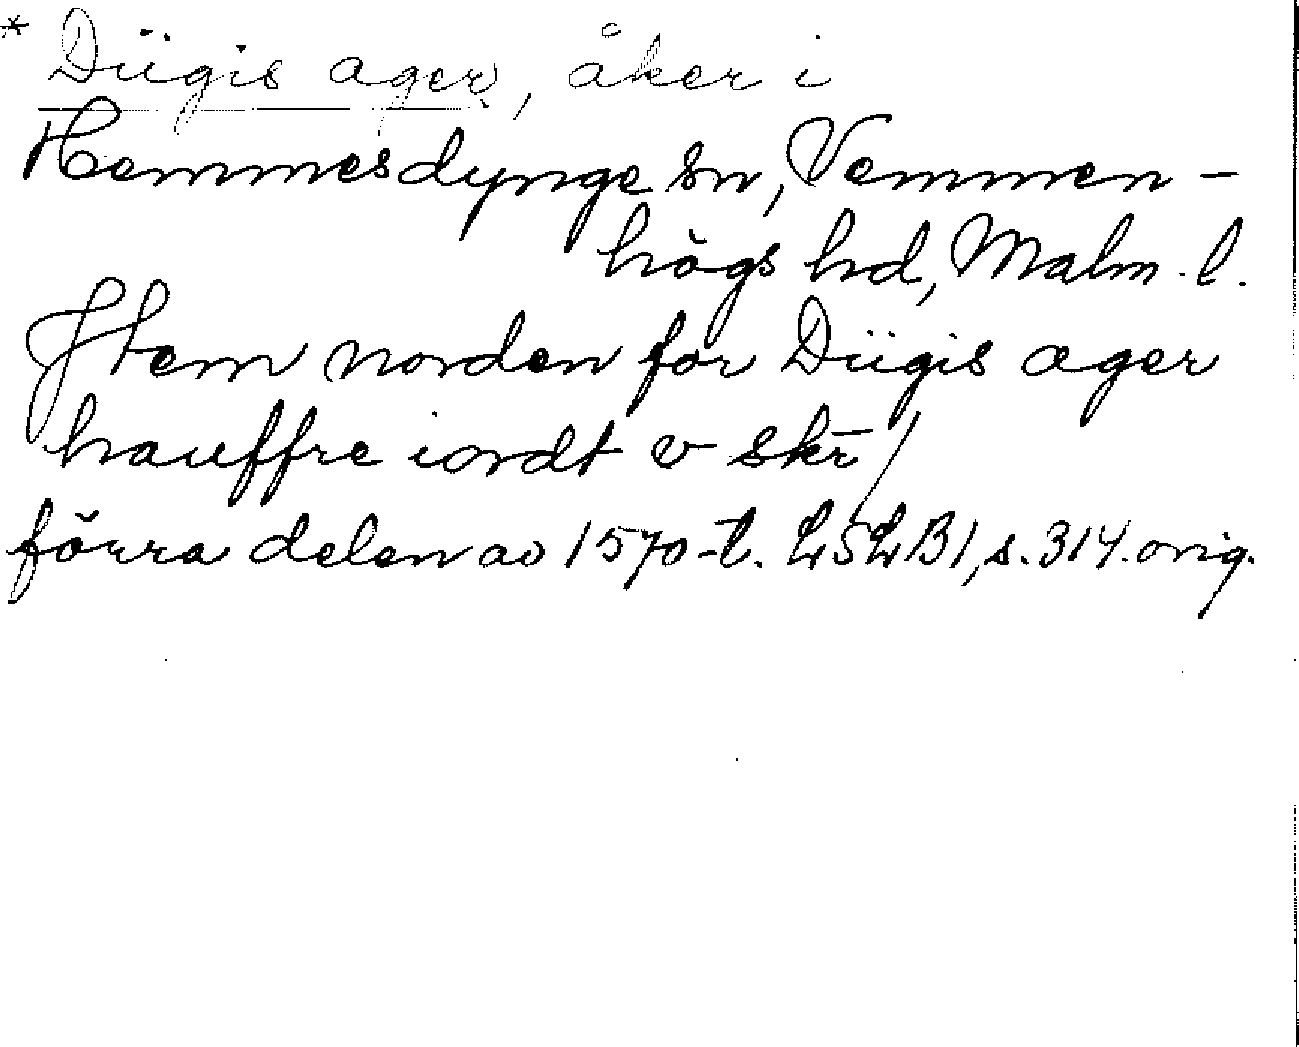 * Diigis ager, åker i
Hemmesdynge sn, Vemmen-
högs hd, Malm. l.
Jtem norden for Diigis ager
hauffre iordt v skr̄ /
förra delen av 1570-t. LSLB1, s. 314. orig.